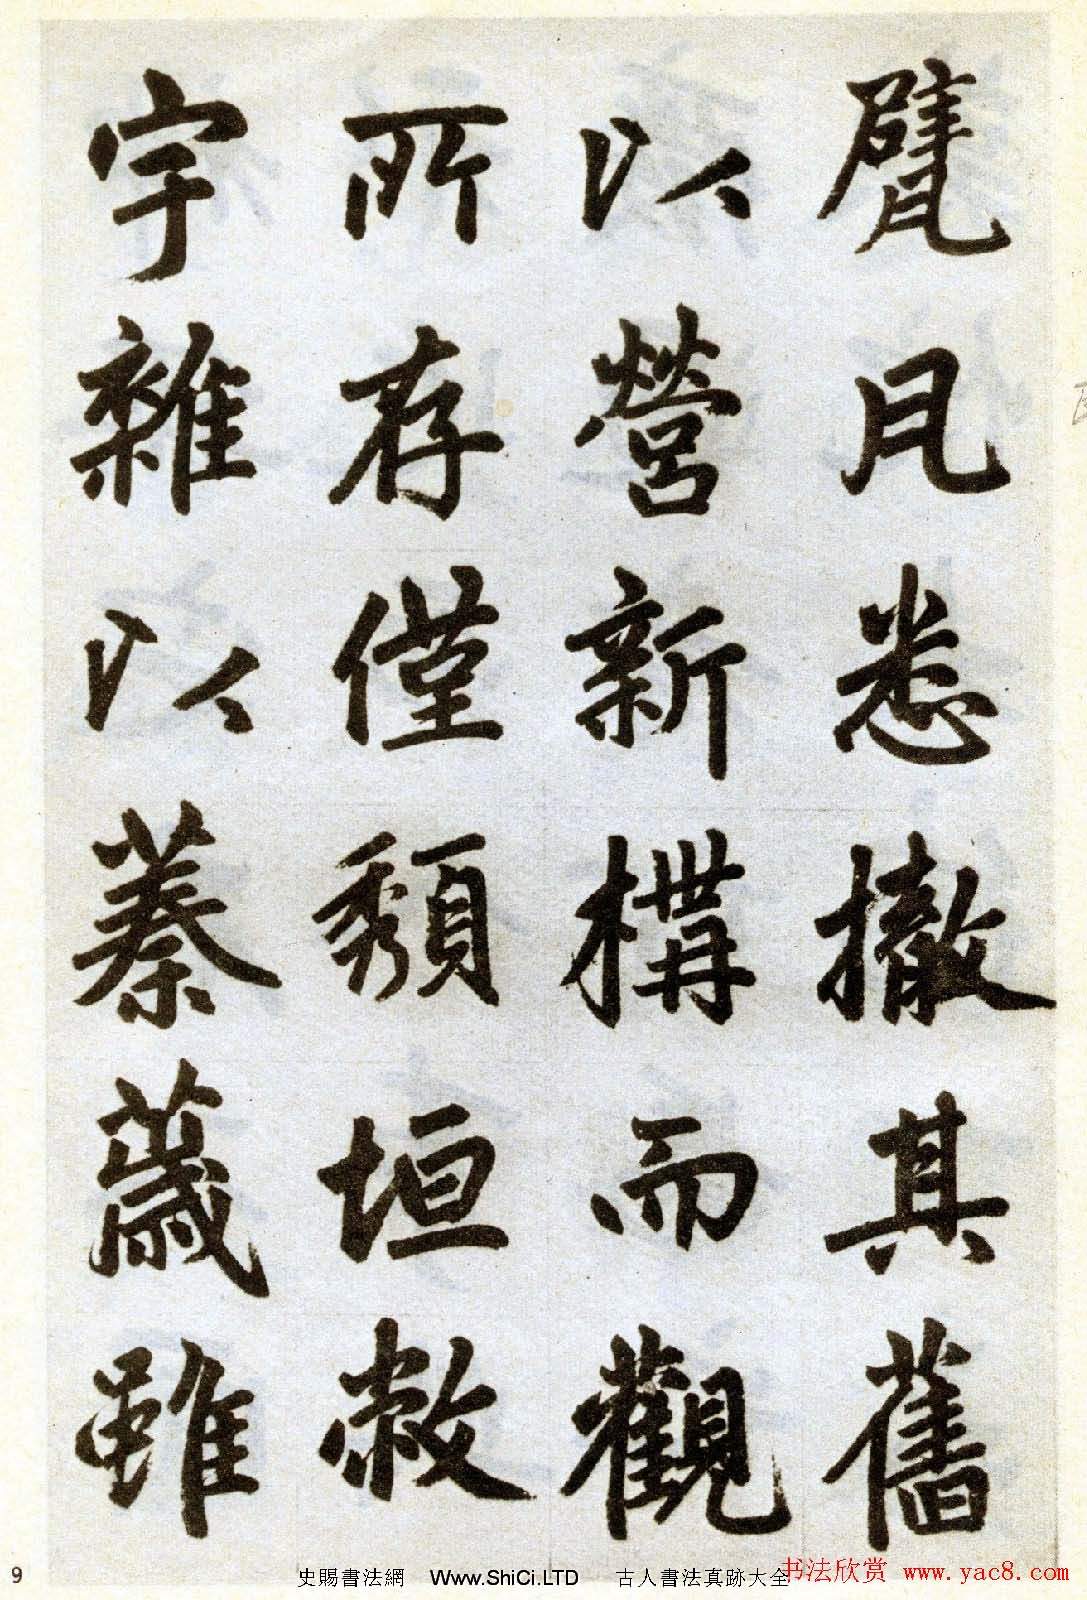 甓瓦悉撤其舊
以營新構而觀
所存僅頹垣敝
宇雜以蓁薉雖
9
史賜書法網 Www.ShiCi.LTD 古人書法真跡大全
书法欣赏 www.yac8.com